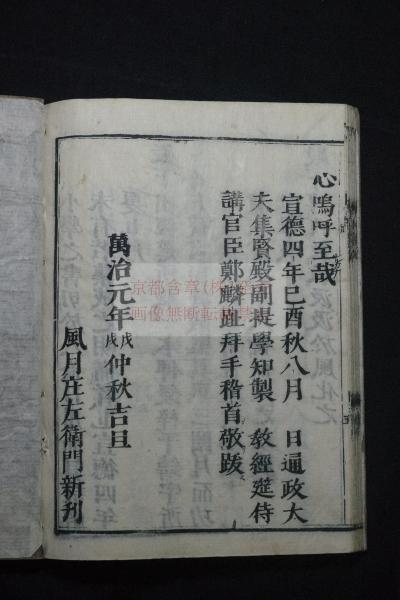 心嗚呼至哉
宣德四年己酉秋八月　日通政大
夫集賢殿副提學知製　教經筵侍
講官臣鄭麟趾拜手稽首敬跋
萬治元年戊戌仲秋吉旦
風月庄左衛門新刊
京都含章(株)
画像無断転